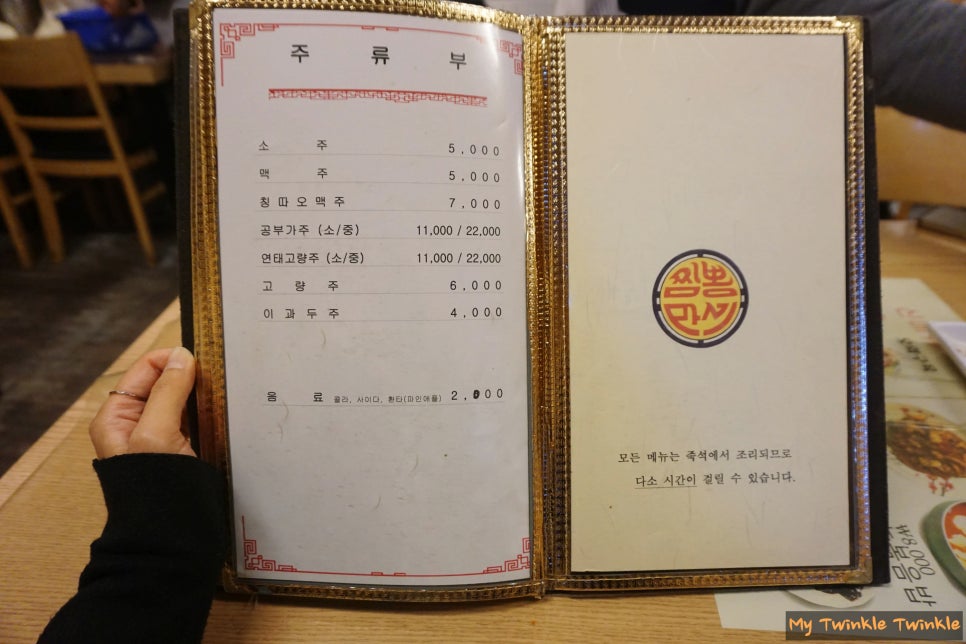 주 류 부
소 주 5,000
맥 주 5,000
칭 따 오 맥 주 7,000
공부가주 (소/중) 11,000 / 22,000
연태고량주 (소/중) 11,000 / 22,000
고 량 주 6,000
이 과 두 주 4,000
음 료 콜라, 사이다, 환타(파인애플) 2,000
짬뽕
만세
모든 메뉴는 즉석에서 조리되므로
다소 시간이 걸릴 수 있습니다.
My Twinkle Twinkle